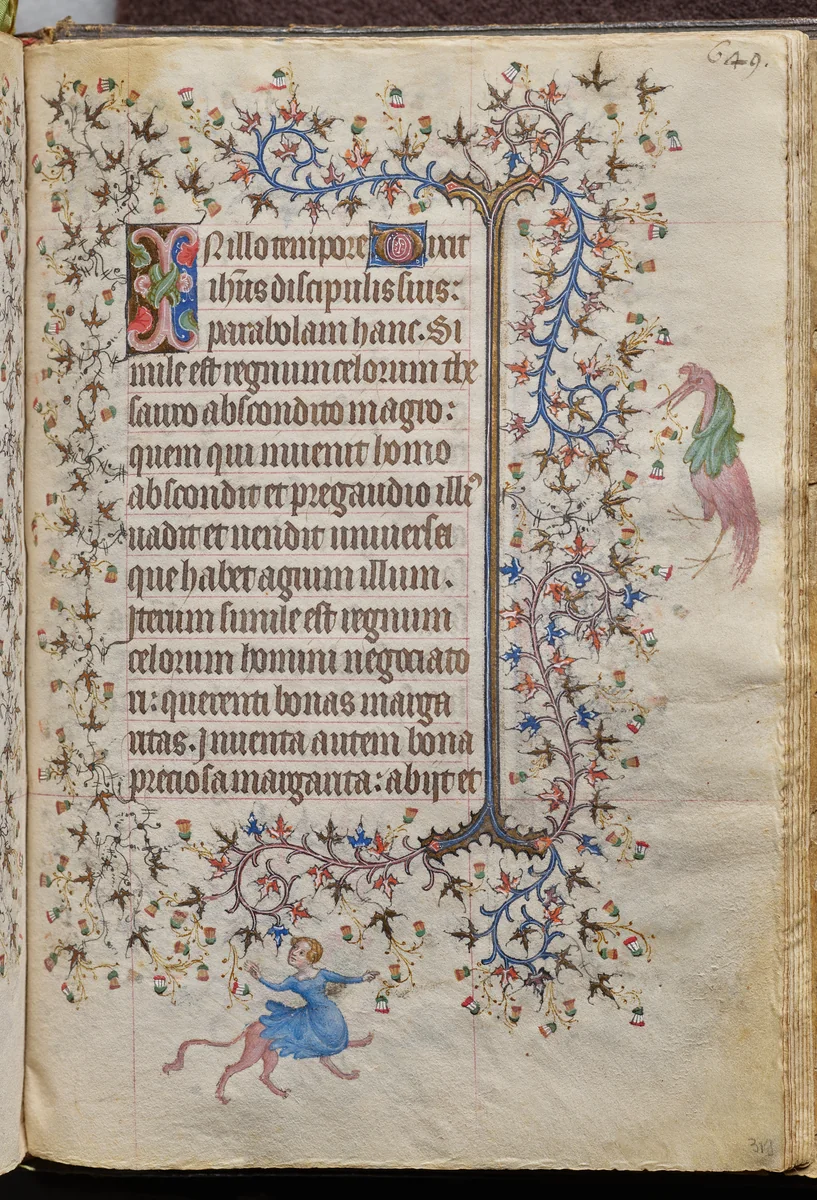 649.
IN illo tempore Dixit
ihūs discipulis suis:
parabolam hanc. Si
mile est regnum celorum the
sauro abscondito in agro:
quem qui inuenit homo
abscondit et pre gaudio illiꝰ
uadit et uendit uniuersa
que habet agrum illum.
Iterum simile est regnum
celorum homini negociato
ri: querenti bonas marga
ritas. Inuenta autem bona
preciosa margarita: abijt et